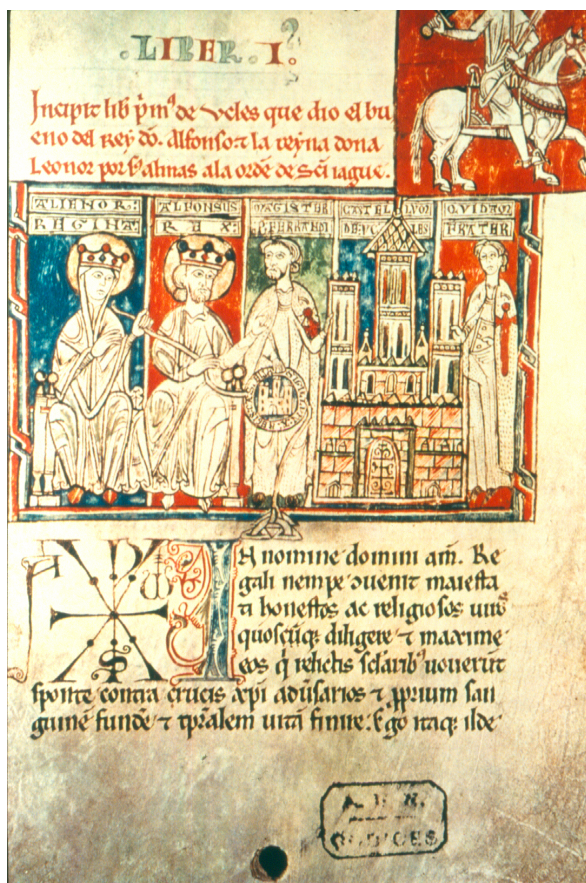 .LIBER.I.
Incipit lib p̃mꝰ de Vcles que dio el bu
eno del Rey dõ. Alfonso ⁊ la reyna dona
Leonor por almas ala ordẽ de Sc̃i iague.
ALIENOR: ALFONSUS MAGISTER CASTELLVM QVIDAM
REGINA: REX: DE FRATER
IN nomine domini am̃. Re
gali nempe ↄuenit maiesta
ti honestos ac religiosos uiros
quoscũq; diligere ⁊ maxime
eos q̃ relictis sc̃larib' uouerũt
sponte contra crucis xp̃i aduersarios ⁊ ꝓprium san
guinẽ fundẽ ⁊ tp̃ralem uitã finire. Ego itaq; ilde
A. H. N.
CODICES